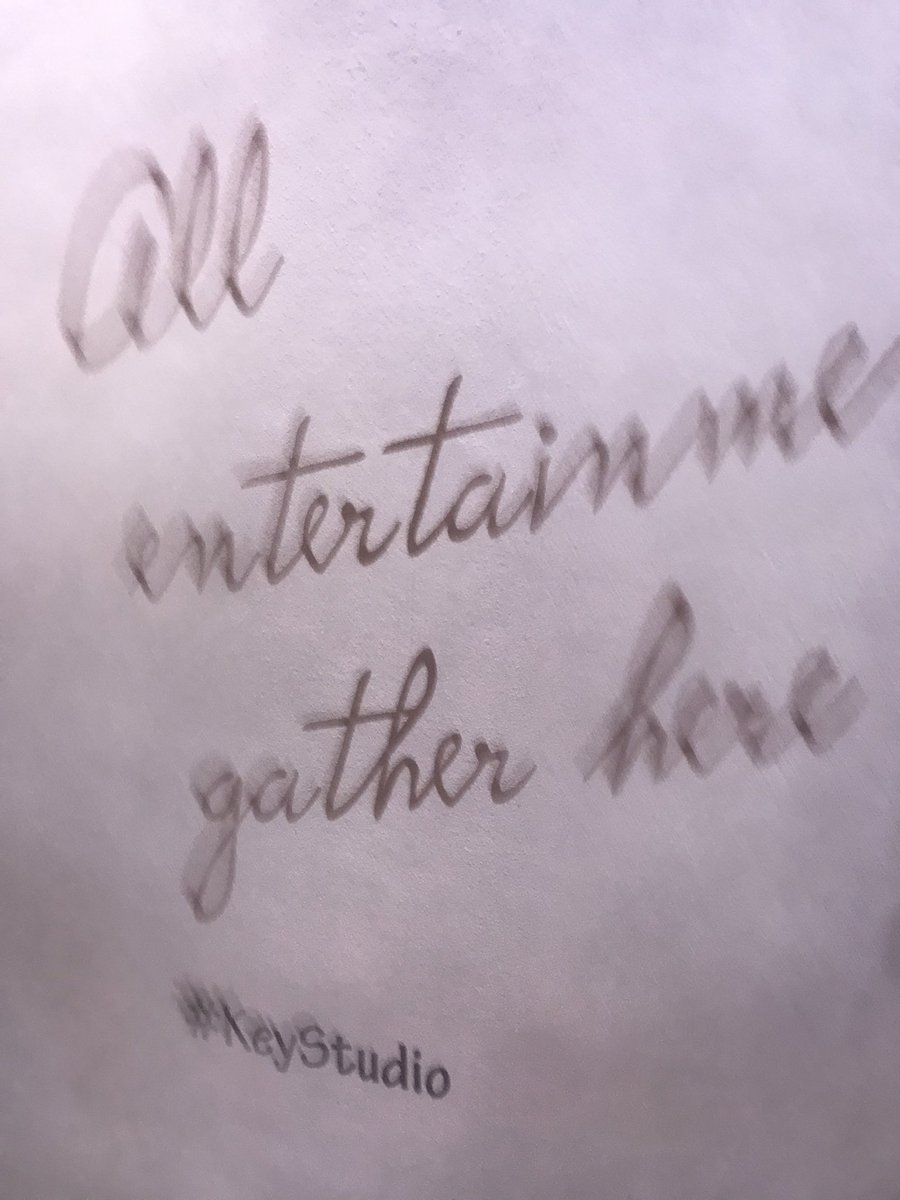 All
entertainme
gather here
#KeyStudio